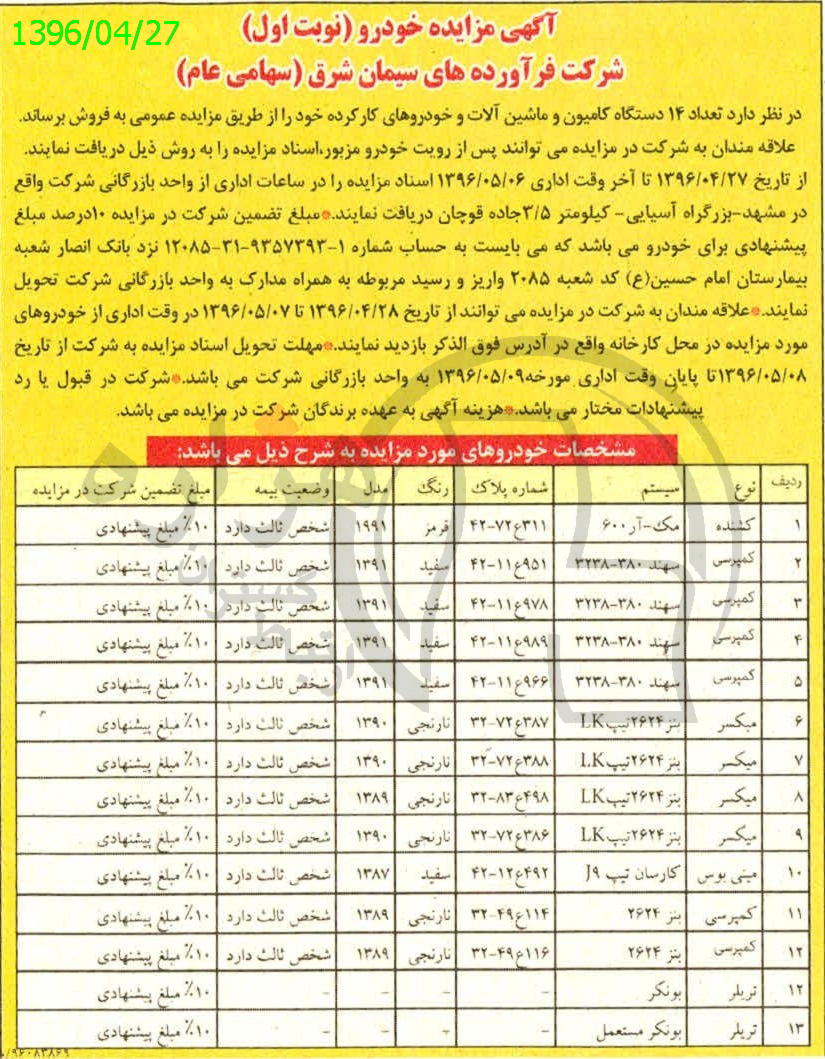 1396/04/27
آگهی مزایده خودرو (نوبت اول)
شرکت فرآورده های سیمان شرق (سهامی عام)
در نظر دارد تعداد ۱۴ دستگاه کامیون و ماشین آلات و خودروهای کارکرده خود را از طریق مزایده عمومی به فروش برساند.
علاقه مندان به شرکت در مزایده می توانند پس از رویت خودرو مزبور،اسناد مزایده را به روش ذیل دریافت نمایند.
از تاریخ ۱۳۹۶/۰۴/۲۷ تا آخر وقت اداری ۱۳۹۶/۰۵/۰۶ اسناد مزایده را در ساعات اداری از واحد بازرگانی شرکت واقع
در مشهد-بزرگراه آسیایی- کیلومتر ۳/۵جاده قوچان دریافت نمایند.*مبلغ تضمین شرکت در مزایده ۱۰درصد مبلغ
پیشنهادی برای خودرو می باشد که می بایست به حساب شماره ۱-۹۳۵۷۳۹۳-۳۱-۱۲۰۸۵ نزد بانک انصار شعبه
بیمارستان امام حسین(ع) کد شعبه ۲۰۸۵ واریز و رسید مربوطه به همراه مدارک به واحد بازرگانی شرکت تحویل
نمایند.*علاقه مندان به شرکت در مزایده می توانند از تاریخ ۱۳۹۶/۰۴/۲۸ تا ۱۳۹۶/۰۵/۰۷ در وقت اداری از خودروهای
مورد مزایده در محل کارخانه واقع در آدرس فوق الذکر بازدید نمایند.*مهلت تحویل اسناد مزایده به شرکت از تاریخ
۱۳۹۶/۰۵/۰۸تا پایان وقت اداری مورخه۱۳۹۶/۰۵/۰۹ به واحد بازرگانی شرکت می باشد.*شرکت در قبول یا رد
پیشنهادات مختار می باشد.*هزینه آگهی به عهده برندگان شرکت در مزایده می باشد.
مشخصات خودروهای مورد مزایده به شرح ذیل می باشد:
ردیف نوع سیستم شماره پلاک رنگ مدل وضعیت بیمه مبلغ تضمین شرکت در مزایده
۱ کشنده مک-آر۶۰۰ ۳۱۱ع۷۲-۴۲ قرمز ۱۹۹۱ شخص ثالث دارد ۱۰٪ مبلغ پیشنهادی
۲ کمپرسی سهند ۳۸۰-۳۲۳۸ ۹۵۱ع۱۱-۴۲ سفید ۱۳۹۱ شخص ثالث دارد ۱۰٪ مبلغ پیشنهادی
۳ کمپرسی سهند ۳۸۰-۳۲۳۸ ۹۷۸ع۱۱-۴۲ سفید ۱۳۹۱ شخص ثالث دارد ۱۰٪ مبلغ پیشنهادی
۴ کمپرسی سهند ۳۸۰-۳۲۳۸ ۹۸۹ع۱۱-۴۲ سفید ۱۳۹۱ شخص ثالث دارد ۱۰٪ مبلغ پیشنهادی
۵ کمپرسی سهند ۳۸۰-۳۲۳۸ ۹۶۶ع۱۱-۴۲ سفید ۱۳۹۱ شخص ثالث دارد ۱۰٪ مبلغ پیشنهادی
۶ میکسر بنز ۲۶۲۴تیپLK ۳۸۷ع۷۲-۳۲ نارنجی ۱۳۹۰ شخص ثالث دارد ۱۰٪ مبلغ پیشنهادی
۷ میکسر بنز ۲۶۲۴تیپLK ۳۸۸ع۷۲-۳۲ نارنجی ۱۳۹۰ شخص ثالث دارد ۱۰٪ مبلغ پیشنهادی
۸ میکسر بنز ۲۶۲۴تیپLK ۴۹۸ع۸۳-۳۲ نارنجی ۱۳۸۹ شخص ثالث دارد ۱۰٪ مبلغ پیشنهادی
۹ میکسر بنز ۲۶۲۴تیپLK ۳۸۶ع۷۲-۳۲ نارنجی ۱۳۹۰ شخص ثالث دارد ۱۰٪ مبلغ پیشنهادی
۱۰ مینی بوس کارسان تیپ J۹ ۴۹۲ع۱۲-۴۲ سفید ۱۳۸۷ شخص ثالث دارد ۱۰٪ مبلغ پیشنهادی
۱۱ کمپرسی بنز ۲۶۲۴ ۱۱۴ع۴۹-۳۲ نارنجی ۱۳۸۹ شخص ثالث دارد ۱۰٪ مبلغ پیشنهادی
۱۲ کمپرسی بنز ۲۶۲۴ ۱۱۶ع۴۹-۳۲ نارنجی ۱۳۸۹ شخص ثالث دارد ۱۰٪ مبلغ پیشنهادی
۱۲ تریلر بونکر - - - - ۱۰٪ مبلغ پیشنهادی
۱۳ تریلر بونکر مستعمل - - - - ۱۰٪ مبلغ پیشنهادی
/۹۶۰۸۳۸۶۹